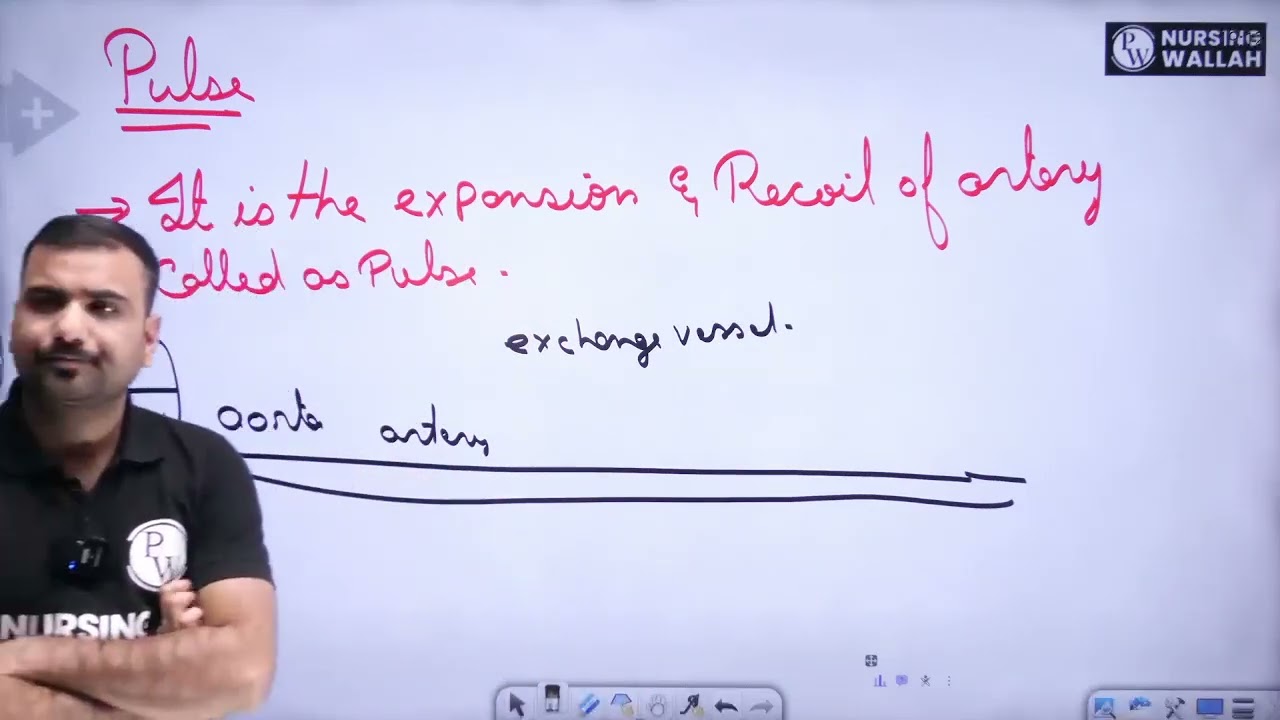 Pulse
NURSING
WALLAH
PW
→ It is the expansion & Recoil of artery
Called as Pulse.
exchange vessel.
aorta artery
PW
NURSING